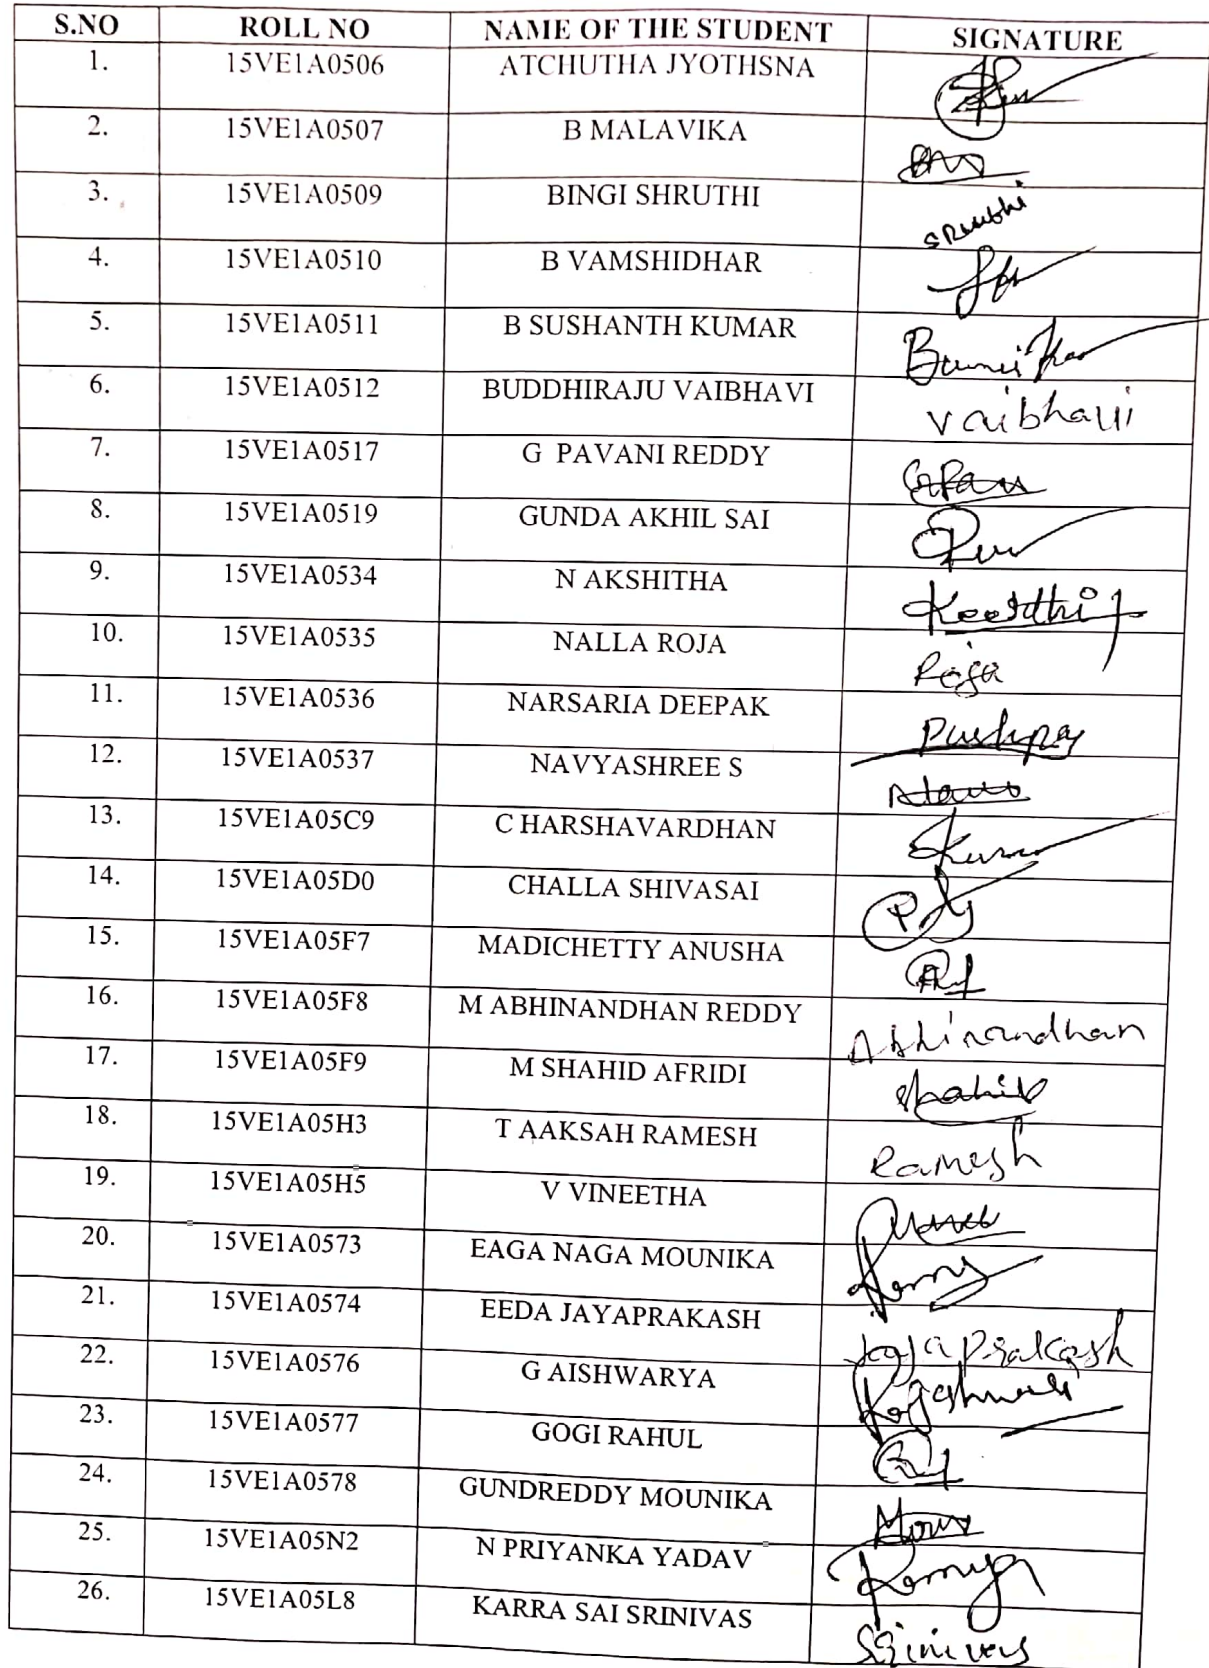 S.NO ROLL NO NAME OF THE STUDENT SIGNATURE
1. 15VE1A0506 ATCHUTHA JYOTHSNA
2. 15VE1A0507 B MALAVIKA
3. 15VE1A0509 BINGI SHRUTHI
4. 15VE1A0510 B VAMSHIDHAR
5. 15VE1A0511 B SUSHANTH KUMAR
6. 15VE1A0512 BUDDHIRAJU VAIBHAVI Vaibhavi
7. 15VE1A0517 G PAVANI REDDY
8. 15VE1A0519 GUNDA AKHIL SAI
9. 15VE1A0534 N AKSHITHA Keerthi
10. 15VE1A0535 NALLA ROJA Roja
11. 15VE1A0536 NARSARIA DEEPAK
12. 15VE1A0537 NAVYASHREE S
13. 15VE1A05C9 C HARSHAVARDHAN
14. 15VE1A05D0 CHALLA SHIVASAI
15. 15VE1A05F7 MADICHETTY ANUSHA
16. 15VE1A05F8 M ABHINANDHAN REDDY Abhinandhan
17. 15VE1A05F9 M SHAHID AFRIDI Shahid
18. 15VE1A05H3 T AAKSAH RAMESH Ramesh
19. 15VE1A05H5 V VINEETHA
20. 15VE1A0573 EAGA NAGA MOUNIKA
21. 15VE1A0574 EEDA JAYAPRAKASH Jayaprakash
22. 15VE1A0576 G AISHWARYA
23. 15VE1A0577 GOGI RAHUL
24. 15VE1A0578 GUNDREDDY MOUNIKA
25. 15VE1A05N2 N PRIYANKA YADAV
26. 15VE1A05L8 KARRA SAI SRINIVAS